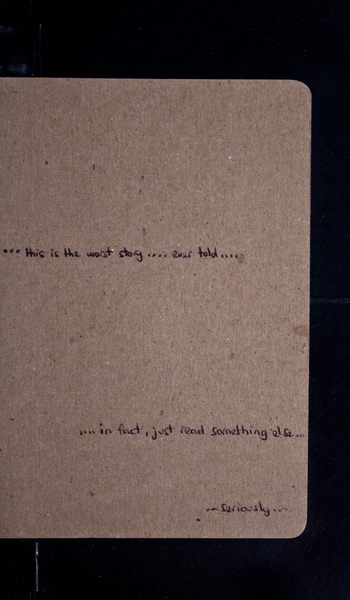 ... this is the worst story .... ever told ....
.... in fact, just read something else...
... seriously...